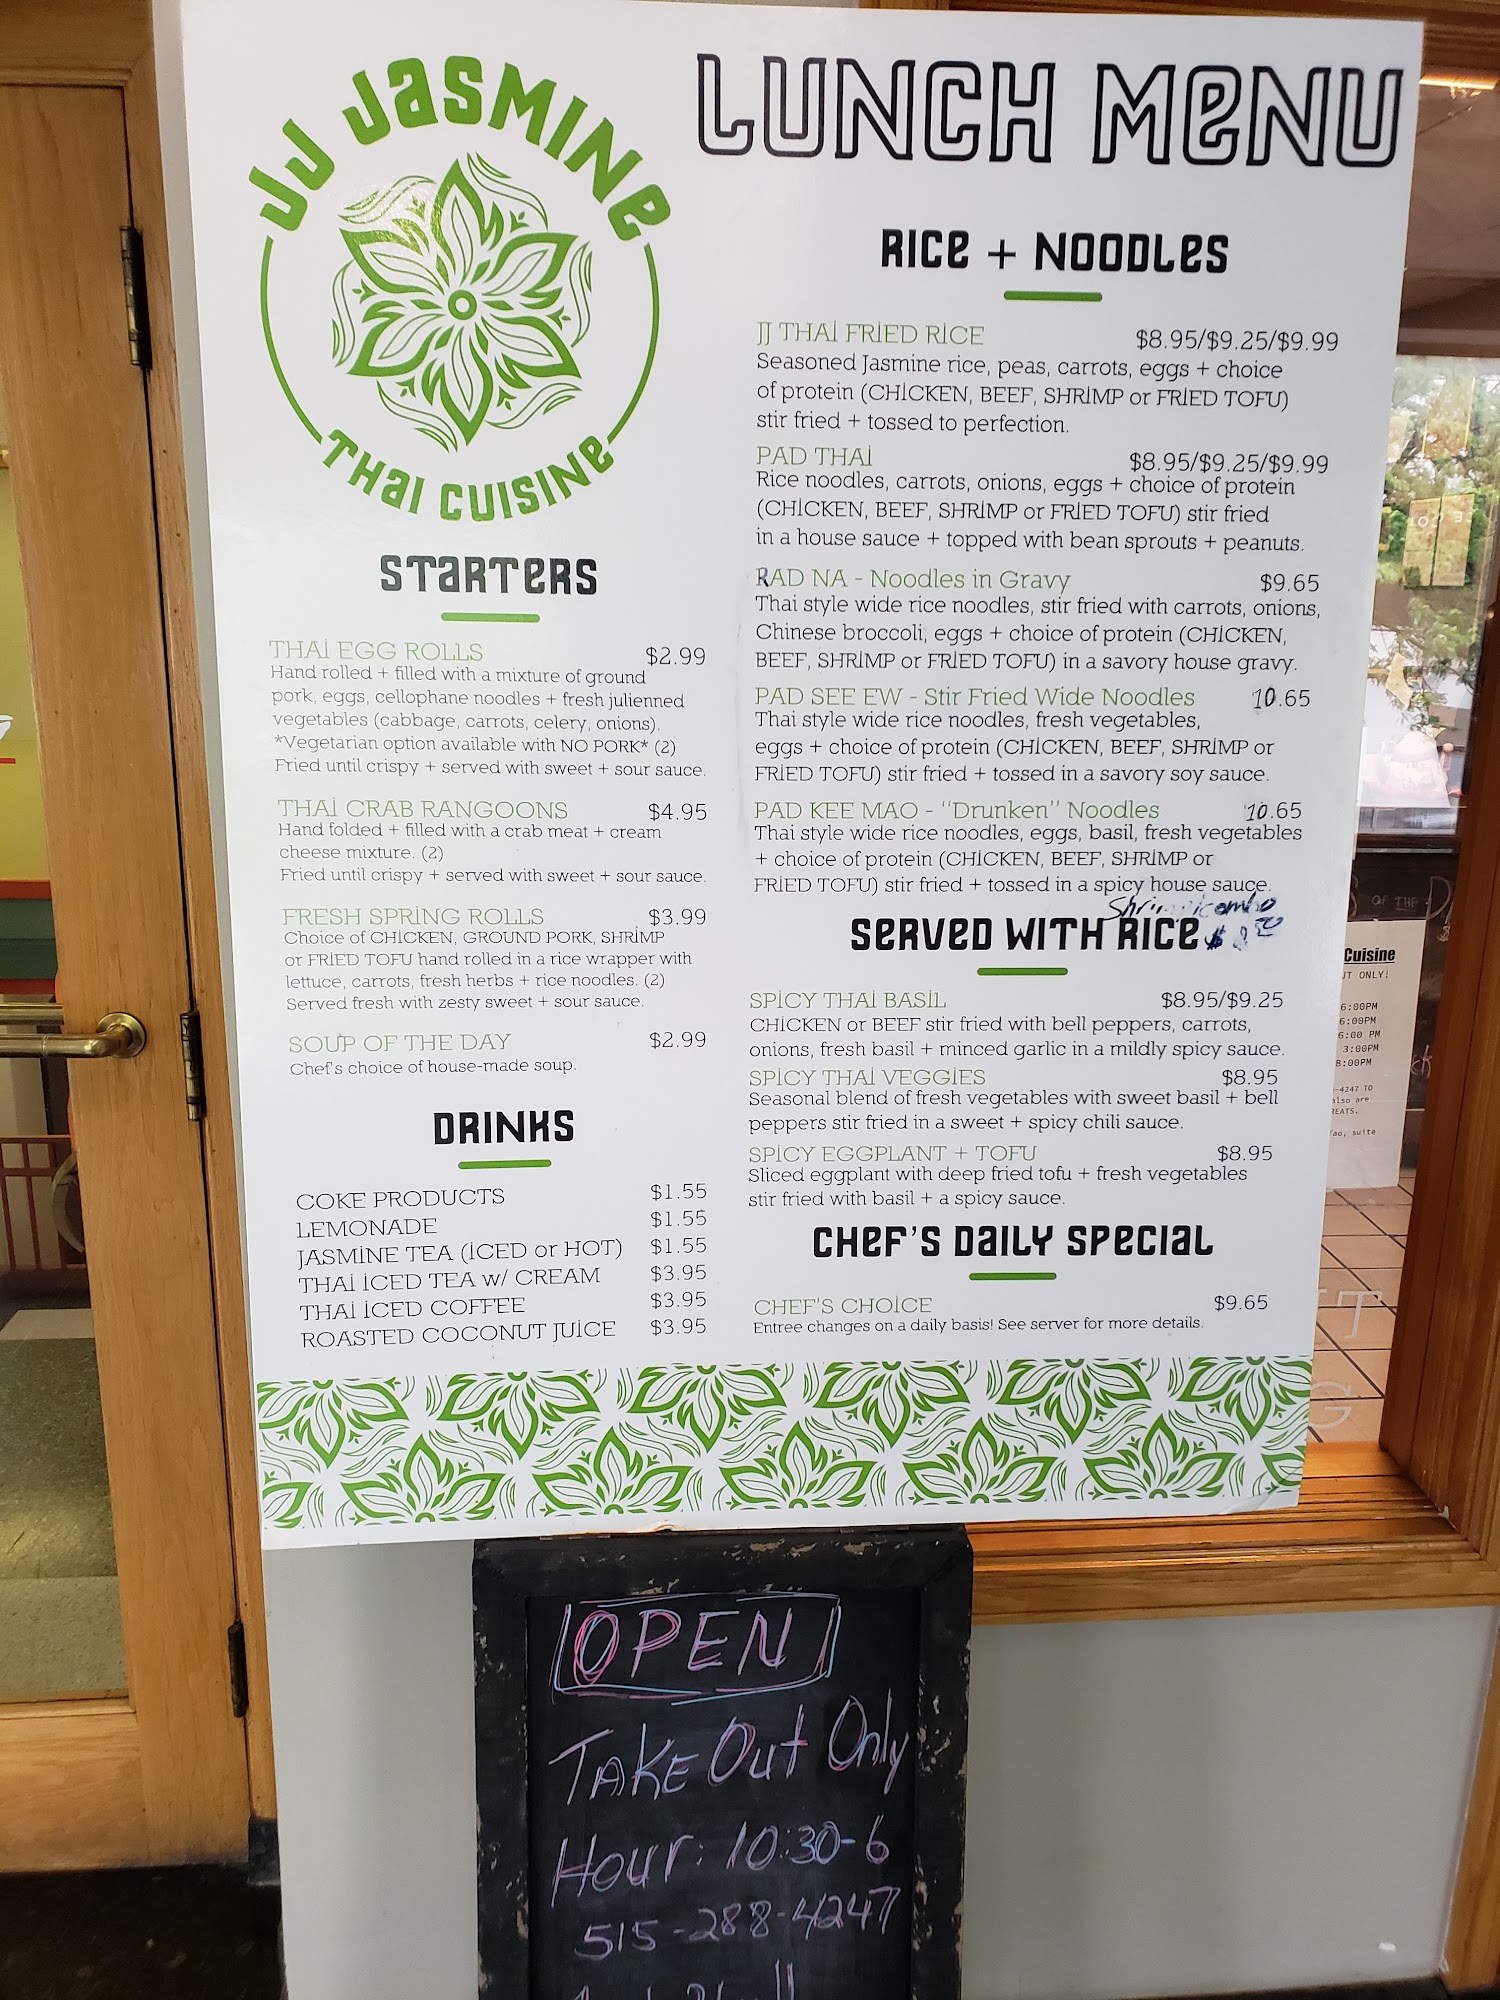 JJ JASMINE
THAI CUISINE
LUNCH MENU
STARTERS
THAI EGG ROLLS $2.99
Hand rolled + filled with a mixture of ground
pork, eggs, cellophane noodles + fresh julienned
vegetables (cabbage, carrots, celery, onions).
*Vegetarian option available with NO PORK* (2)
Fried until crispy + served with sweet + sour sauce.
THAI CRAB RANGOONS $4.95
Hand folded + filled with a crab meat + cream
cheese mixture. (2)
Fried until crispy + served with sweet + sour sauce.
FRESH SPRING ROLLS $3.99
Choice of CHICKEN, GROUND PORK, SHRIMP
or FRIED TOFU hand rolled in a rice wrapper with
lettuce, carrots, fresh herbs + rice noodles. (2)
Served fresh with zesty sweet + sour sauce.
SOUP OF THE DAY $2.99
Chef's choice of house-made soup.
DRINKS
COKE PRODUCTS $1.55
LEMONADE $1.55
JASMINE TEA (ICED or HOT) $1.55
THAI ICED TEA w/ CREAM $3.95
THAI ICED COFFEE $3.95
ROASTED COCONUT JUICE $3.95
RICE + NOODLES
JJ THAI FRIED RICE $8.95/$9.25/$9.99
Seasoned Jasmine rice, peas, carrots, eggs + choice
of protein (CHICKEN, BEEF, SHRIMP or FRIED TOFU)
stir fried + tossed to perfection.
PAD THAI $8.95/$9.25/$9.99
Rice noodles, carrots, onions, eggs + choice of protein
(CHICKEN, BEEF, SHRIMP or FRIED TOFU) stir fried
in a house sauce + topped with bean sprouts + peanuts.
RAD NA - Noodles in Gravy $9.65
Thai style wide rice noodles, stir fried with carrots, onions,
Chinese broccoli, eggs + choice of protein (CHICKEN,
BEEF, SHRIMP or FRIED TOFU) in a savory house gravy.
PAD SEE EW - Stir Fried Wide Noodles 10.65
Thai style wide rice noodles, fresh vegetables,
eggs + choice of protein (CHICKEN, BEEF, SHRIMP or
FRIED TOFU) stir fried + tossed in a savory soy sauce.
PAD KEE MAO - "Drunken" Noodles 10.65
Thai style wide rice noodles, eggs, basil, fresh vegetables
+ choice of protein (CHICKEN, BEEF, SHRIMP or
FRIED TOFU) stir fried + tossed in a spicy house sauce.
SERVED WITH RICE
SPICY THAI BASIL $8.95/$9.25
CHICKEN or BEEF stir fried with bell peppers, carrots,
onions, fresh basil + minced garlic in a mildly spicy sauce.
SPICY THAI VEGGIES $8.95
Seasonal blend of fresh vegetables with sweet basil + bell
peppers stir fried in a sweet + spicy chili sauce.
SPICY EGGPLANT + TOFU $8.95
Sliced eggplant with deep fried tofu + fresh vegetables
stir fried with basil + a spicy sauce.
CHEF'S DAILY SPECIAL
CHEF'S CHOICE $9.65
Entree changes on a daily basis! See server for more details.
OF THE
Cuisine
UT ONLY!
6:00PM
6:00PM
6:00 PM
3:00PM
8:00PM
-4247 TO
also are
REATS.
ao, suite
OPEN
TAKE Out Only
Hour: 10:30-6
515-288-4247